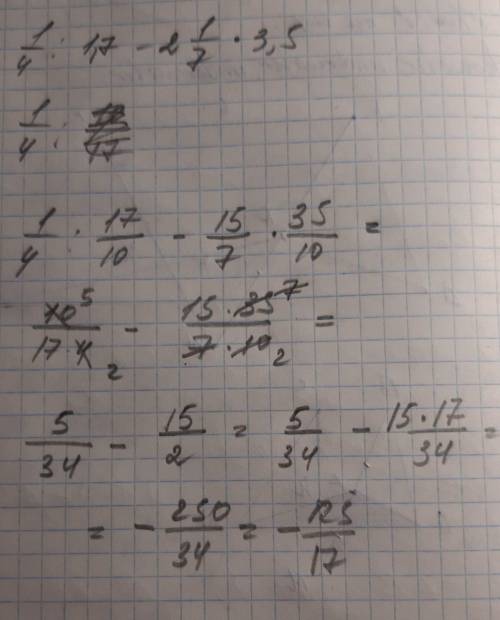 1/4 : 1,7 - 2 1/7 · 3,5
1/4 :
1/4 : 17/10 - 15/7 · 35/10 =
10 5/17·4 2 - 15·35 7/7·10 2 =
5/34 - 15/2 = 5/34 - 15·17/34 =
= - 250/34 = - 125/17